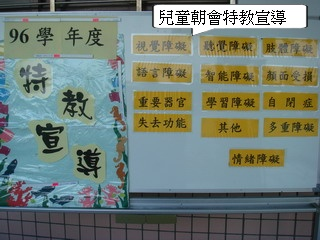 兒童朝會特教宣導
96學年度
特
教
宣
導
視覺障礙
聽覺障礙
肢體障礙
語言障礙
智能障礙
顏面受損
重要器官
失去功能
學習障礙
自閉症
其他
多重障礙
情緒障礙